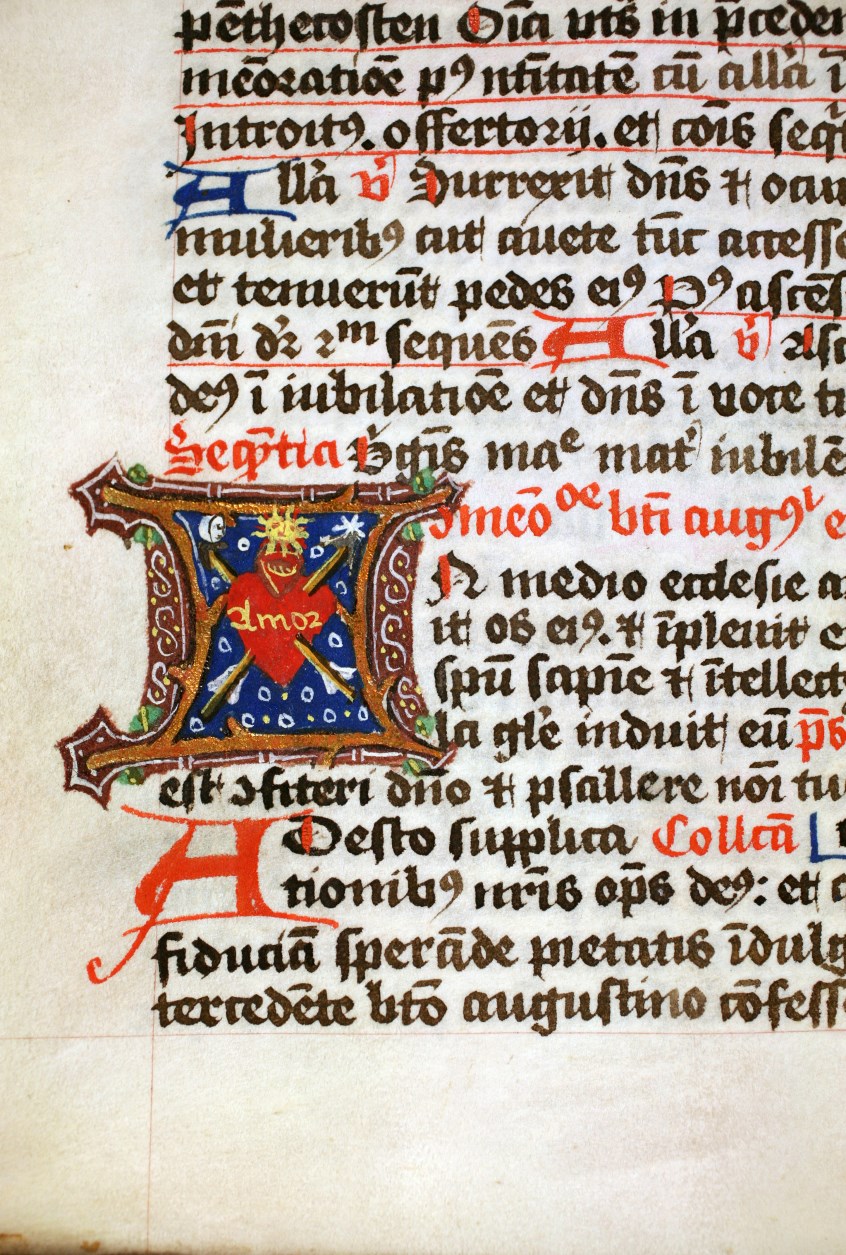 pēthecosten Oīa vts in p̄ceden
mēoratiōe pꝰ nt̄itatē cū all'a ī
Introitꝰ. offertorij. et cōis seq̄
Alla v̄ Surrexit dn̄s ⁊ occu
mulieribꝰ ait auete tūc accesse
et tenuerūt pedes eiꝰ Pꝰ ascēs
dn̄i dr̄ 2m sequēs Alla v̄ Asc
deꝰ ī iubilatiōe et dn̄s ī voce tu
Seqn̄tia Vgīs mae mat' iubilē
ꝯmēōoe bt̄i augꝰl e
In medio ecclesie a
it os eiꝰ. ⁊ īpleuit e
amor
spū sapīe ⁊ ītellect
la gl'e induit eū ps
est ꝯfiteri dn̄o ⁊ psallere noī tu
ADesto supplica Collcā
tionibꝰ nr̄is op̄s deꝰ: et
fiduciā sperāde pietatis īdulg
tercedēte bt̄o augustino cōfess